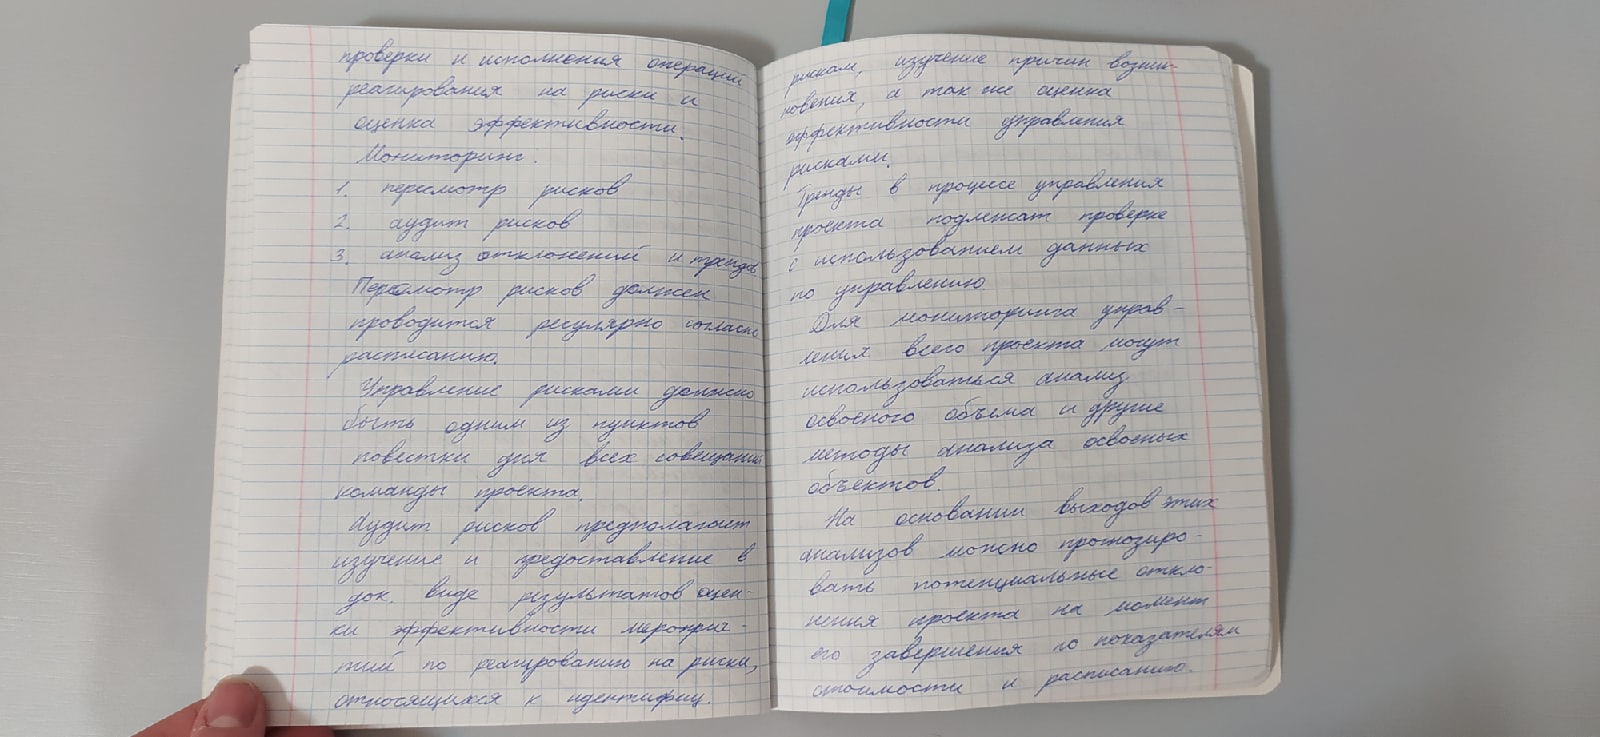 проверки и исполнения операций
реагирования на риски и
оценка эффективности.
Мониторинг.
1. пересмотр рисков
2. аудит рисков
3. анализ отклонений и трендов
Пересмотр рисков должен
проводится регулярно согласно
расписанию.
Управление рисками должно
быть одним из пунктов
повестки дня всех совещаний
команды проекта.
Аудит рисков предполагает
изучение и предоставление в
док. виде результатов оцен-
ки эффективности мероприя-
тий по реагированию на риски,
относящихся к идентифиц.
рискам, изучение причин возник-
новения, а так же оценка
эффективности управления
рисками.
Тренды в процессе управления
проекта подлежат проверке
с использованием данных
по управлению
Для мониторинга управ-
ления всего проекта могут
использоваться анализ
освоеного объема и другие
методы анализа освоеных
объектов.
На основании выходов этих
анализов можно прогнозиро-
вать потенциальные откло-
нения проекта на момент
его завершения по показателям
стоимости и расписанию.